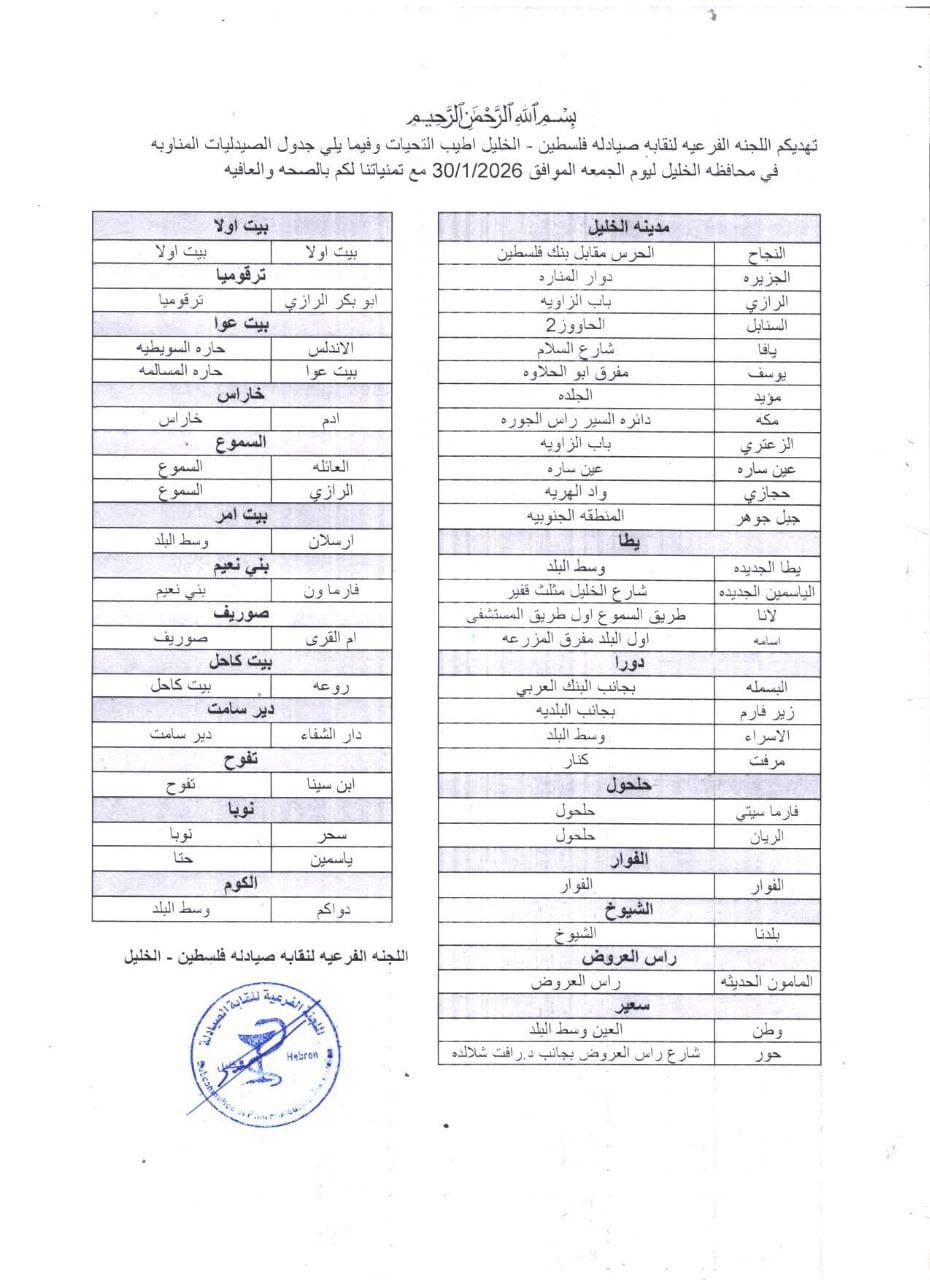 بسم الله الرحمن الرحيم
تهديكم اللجنه الفرعيه لنقابه صيادله فلسطين - الخليل اطيب التحيات وفيما يلي جدول الصيدليات المناوبه
في محافظه الخليل ليوم الجمعه الموافق 30/1/2026 مع تمنياتنا لكم بالصحه والعافيه
مدينه الخليل
النجاح الحرس مقابل بنك فلسطين
الجزيره دوار المناره
الرازي باب الزاويه
السنابل الحاووز2
يافا شارع السلام
يوسف مفرق ابو الحلاوه
مؤيد الجلده
مكه دائره السير راس الجوره
الزعتري باب الزاويه
عين ساره عين ساره
حجازي واد الهريه
جبل جوهر المنطقه الجنوبيه
يطا
يطا الجديده وسط البلد
الياسمين الجديده شارع الخليل مثلث قفير
لانا طريق السموع اول طريق المستشفى
اسامه اول البلد مفرق المزرعه
دورا
البسمله بجانب البنك العربي
زير فارم بجانب البلديه
الاسراء وسط البلد
مرفت كنار
حلحول
فارما سيتي حلحول
الريان حلحول
الفوار
الفوار الفوار
الشيوخ
بلدنا الشيوخ
راس العروض
المامون الحديثه راس العروض
سعير
وطن العين وسط البلد
حور شارع راس العروض بجانب د.رافت شلالده
بيت اولا
بيت اولا بيت اولا
ترقوميا
ابو بكر الرازي ترقوميا
بيت عوا
الاندلس حاره السويطيه
بيت عوا حاره المسالمه
خاراس
ادم خاراس
السموع
العائله السموع
الرازي السموع
بيت امر
ارسلان وسط البلد
بني نعيم
فارما ون بني نعيم
صوريف
ام القرى صوريف
بيت كاحل
روعه بيت كاحل
دير سامت
دار الشفاء دير سامت
تفوح
ابن سينا تفوح
نوبا
سحر نوبا
ياسمين حتا
الكوم
دواكم وسط البلد
اللجنه الفرعيه لنقابه صيادله فلسطين - الخليل
اللجنة الفرعية لنقابة الصيادلة
Hebron